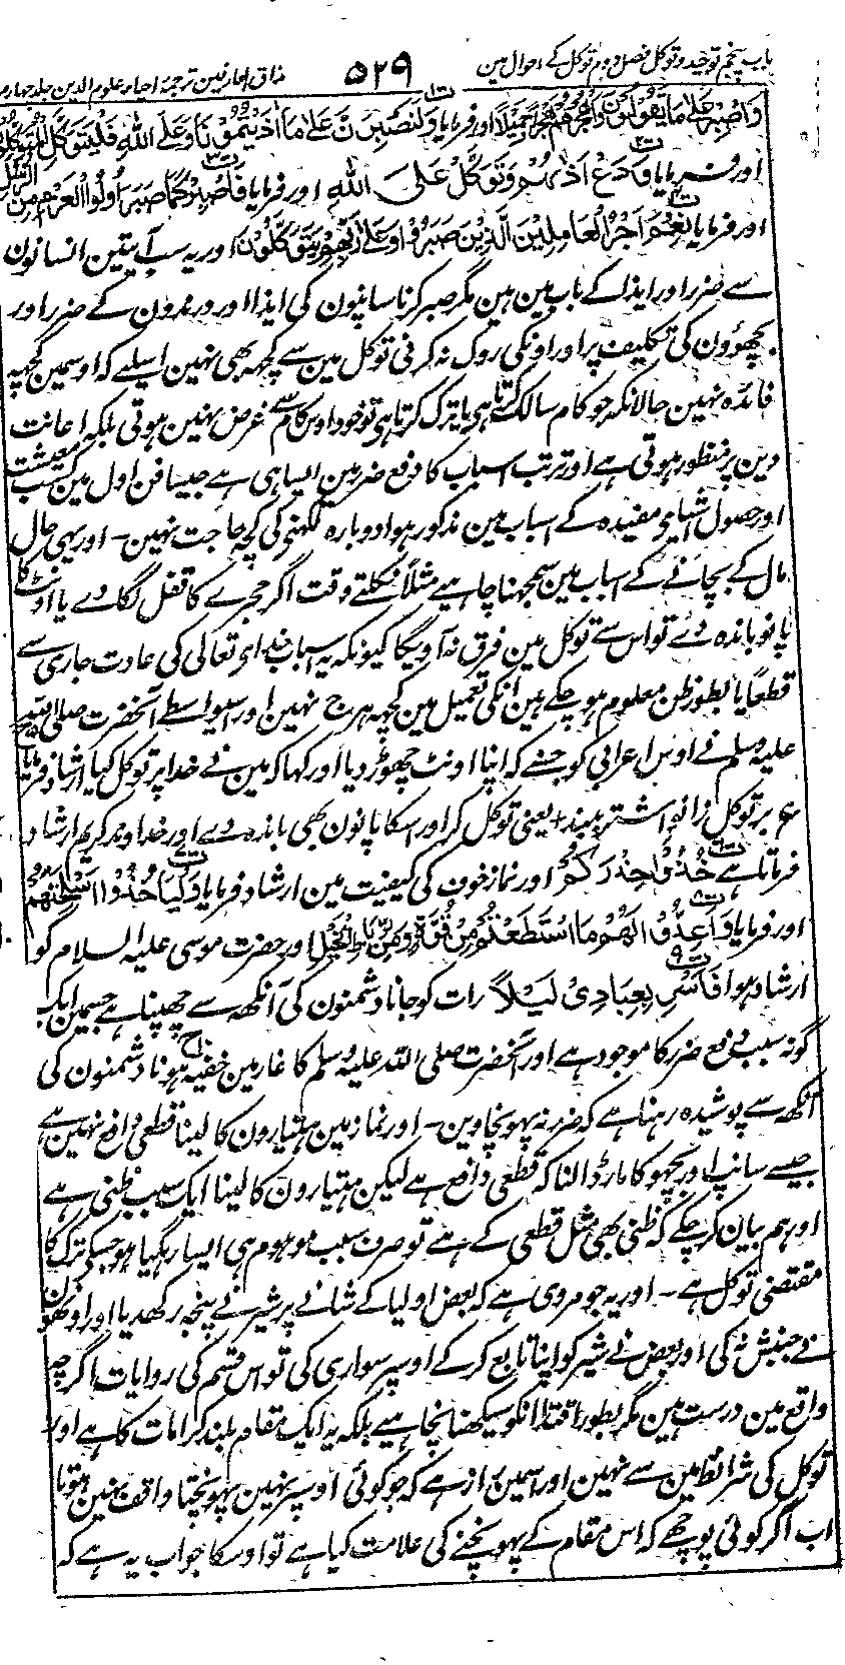 باب پنجم توحید و توکل فصل دوم توکل کے احوال مین
۵۲۹
مذاق العارفین ترجمۂ احیاء علوم الدین جلد چہارم
وَاصْبِرْ عَلٰى مَا يَقُوْلُوْنَ وَاهْجُرْهُمْ هَجْرًا جَمِيْلًا اور فرمایا وَلَنَصْبِرَنَّ عَلٰى مَا اٰذَيْتُمُوْنَا وَعَلَى اللهِ فَلْيَتَوَكَّلِ الْمُتَوَكِّلُوْنَ
اور فرمایا وَدَعْ اَذٰىهُمْ وَتَوَكَّلْ عَلَى اللهِ اور فرمایا فَاصْبِرْ كَمَا صَبَرَ اُولُوا الْعَزْمِ مِنَ الرُّسُلِ
اور فرمایا نِعْمَ اَجْرُ الْعَامِلِيْنَ الَّذِيْنَ صَبَرُوْا وَعَلٰى رَبِّهِمْ يَتَوَكَّلُوْنَ اور یہ سب آیتین انسانون
سے ضرر اور ایذا کے باب مین ہین مگر صبر کرنا سانپون کی ایذا اور درندون کے ضرر اور
بچھوؤن کی تکلیف پر اور اونکی روک نہ کرنی توکل مین سے کچھ بھی نہین اسلیے کہ اوسمین کچھ
فائدہ نہین حالانکہ جو کام سالک کرتا ہی یا ترک کرتا ہی تو خود اوس کام سے غرض نہین ہوتی بلکہ اعانت
دین پر منظور ہوتی ہے اور ترتب اسباب کا دفع ضرر مین ایسا ہی ہے جیسا فن اول مین کسب معیشت
اور حصول اشیاء مفیدہ کے اسباب مین مذکور ہوا دوبارہ لکھنے کی کچھ حاجت نہین - اور یہی حال
مال کے بچانے کے اسباب مین سمجھنا چاہیے مثلاً نکلتے وقت اگر حجرے کا قفل لگا دے یا اونٹ کا
پانو باندہ دے تو اس سے توکل مین فرق نہ آویگا کیونکہ یہ اسباب خداے تعالی کی عادت جاری سے
قطعاً یا بطور ظن معلوم ہو چکے ہین انکی تعمیل مین کچھ ہرج نہین اور اسیواسطے آنحضرت صلی اللہ
علیہ وسلم نے اوس اعرابی کو جسنے کہ اپنا اونٹ چھوڑ دیا اور کہا کہ مین نے خدا پر توکل کیا ارشاد فرمایا
ع بر توکل زانوے اشتر ببند + یعنی توکل کر اور اسکا پانون بھی باندہ دے اور خداوند کریم ارشاد
فرماتا ہے خُذُوْا حِذْرَكُمْ اور نماز خوف کی کیفیت مین ارشاد فرمایا وَلْيَاْخُذُوْا اَسْلِحَتَهُمْ
اور فرمایا وَاَعِدُّوْا لَهُمْ مَا اسْتَطَعْتُمْ مِنْ قُوَّةٍ وَمِنْ رِبَاطِ الْخَيْلِ اور حضرت موسی علیہ السلام کو
ارشاد ہوا فَاَسْرِ بِعِبَادِىْ لَيْلًا رات کو جانا دشمنون کی آنکھ سے چھپنا ہے جسمین ایک
گونہ سبب دفع ضرر کا موجود ہے اور آنحضرت صلی اللہ علیہ وسلم کا غار مین خفیہ ہونا دشمنون کی
آنکھ سے پوشیدہ رہنا ہے کہ ضرر نہ پہونچاوین - اور نماز مین ہتیارون کا لینا قطعی دافع نہین ہے
جیسے سانپ اور بچھو کا مار ڈالنا کہ قطعی دافع ہے لیکن ہتیارون کا لینا ایک سبب ظنی ہے
اور ہم بیان کر چکے کہ ظنی بھی مثل قطعی کے ہے تو صرف سبب موہوم ہی ایسا رہگیا ہو جسکے ترک کا
مقتضی توکل ہے - اور یہ جو مروی ہے کہ بعض اولیا کے شانے پر شیر نے پنجہ رکھدیا اور اونھون
نے جنبش نہ کی اور بعض نے شیر کو اپنا تابع کر کے اوسپر سواری کی تو اس قسم کی روایات اگرچہ
واقع مین درست ہین مگر بطور اقتدا انکو سیکھنا نچاہیے بلکہ یہ ایک مقام بلند کرامات کا ہے اور
توکل کی شرائط مین سے نہین اور اسمین راز ہے کہ جو کوئی اوسپر نہین پہونچتا واقف نہین ہوتا
اب اگر کوئی پوچھے کہ اس مقام کے پہونچنے کی علامت کیا ہے تو اوسکا جواب یہ ہے کہ